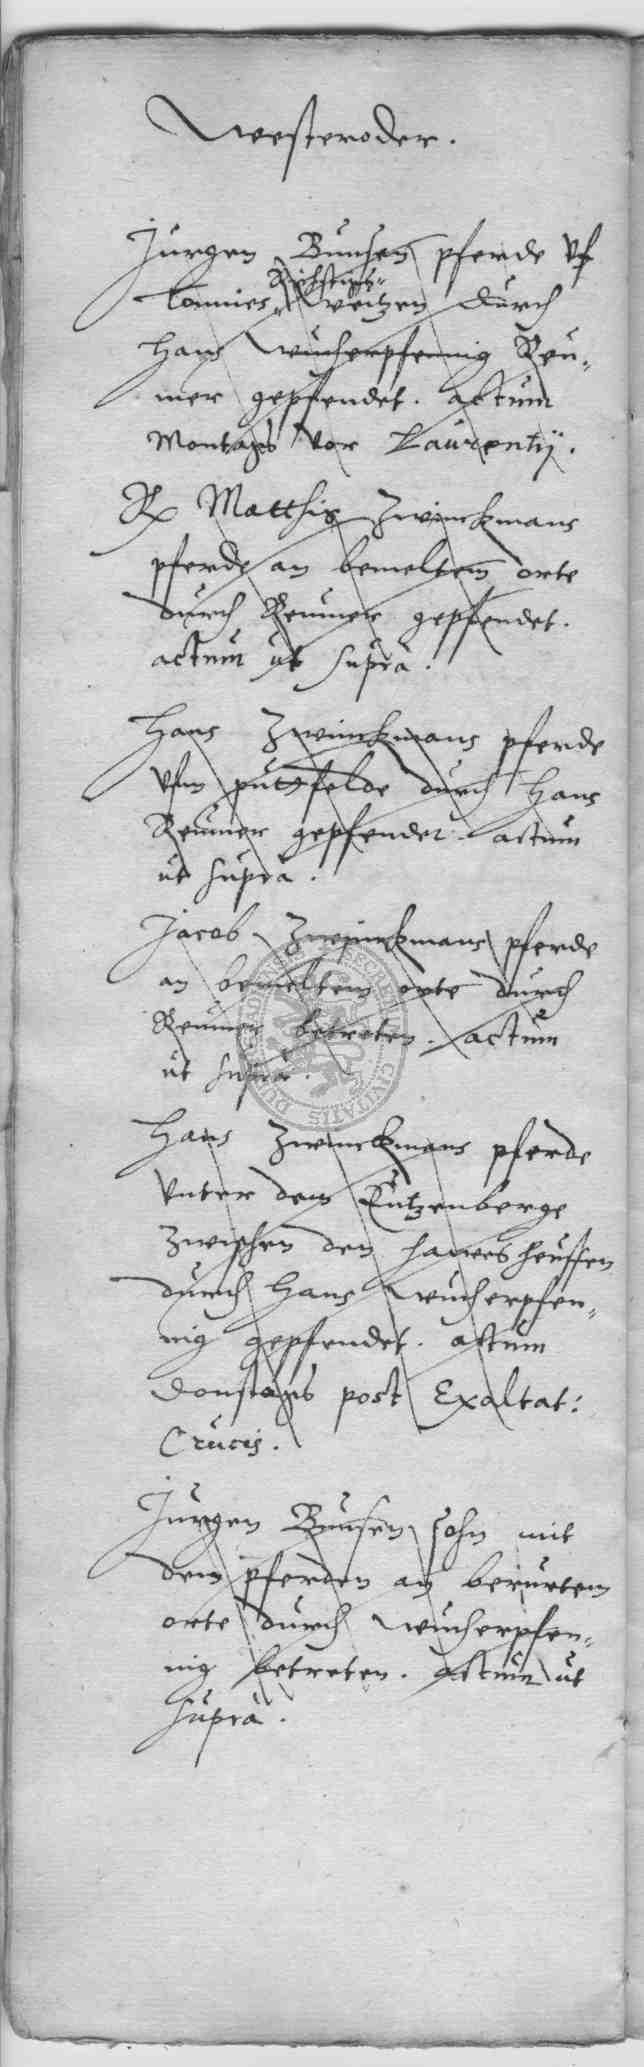 Westeroder.
Jurgen Bunsen pferde vf
Tonnies weitzen durch
Hans wucherpfennig Reu-
mer gepfendet. actum
Montags vor Laurentij.
Matthis Zwinckmans
pferde an bemeltem orte
durch Reumer gepfendet.
actum ut suprà.
Hans Zwinckmans pferde
vfm puttfelde durch Hans
Reumer gepfendet. actum
ut suprà.
Jacob Zwinckmans pferde
an bemeltem orte durch
Reumer betreten. actum
ut suprà.
Hans Zwinckmans pferde
vnter dem Kutzenberge
zwischen den
durch Hans wucherpfen-
nig gepfendet. actum
Donstags post Exaltat:
Crucis.
Jurgen Bunsen sohn mit
den pferden an berurtem
orte durch wucherpfen-
nig betreten. actum ut
suprà.